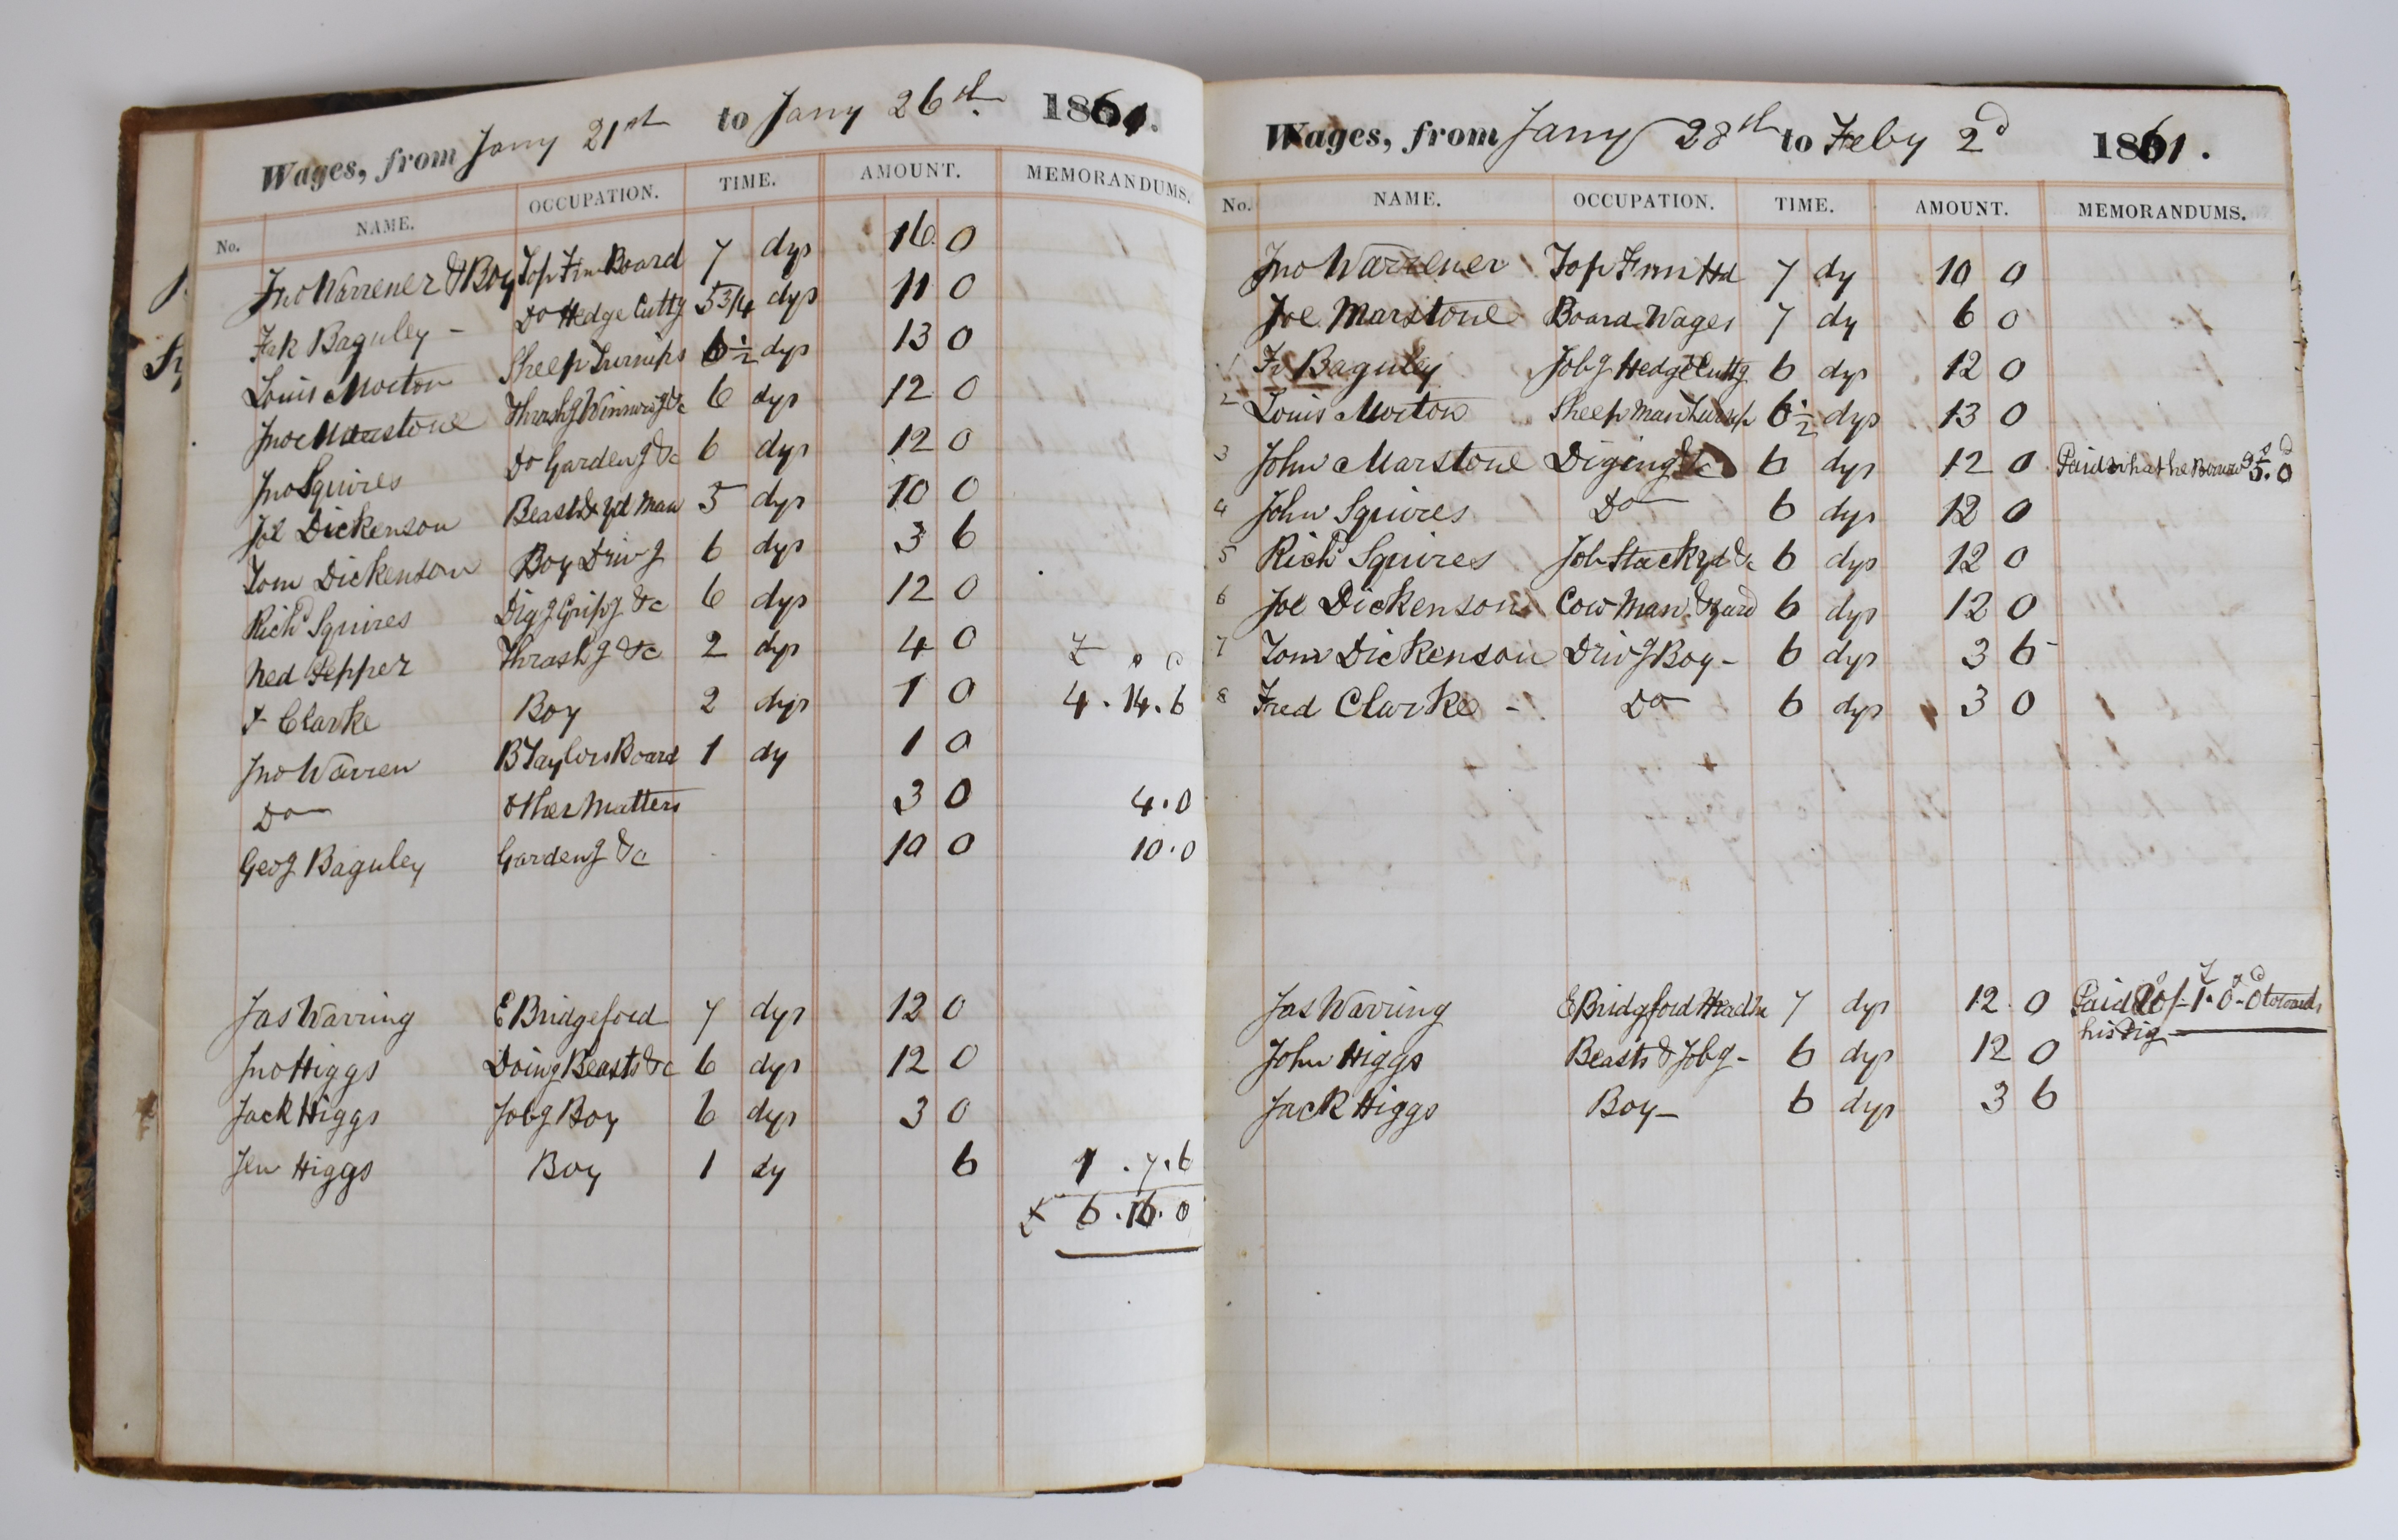 Wages, from Jany 21st to Jany 26th 1861.
No. NAME. OCCUPATION. TIME. AMOUNT. MEMORANDUMS.
Jno Warrener & Boy Top Fm Board 7 dys 16 0
Baguley - Do Hedge Cuttg 5 3/4 dys 11 0
Louis Morton Sheep Turnips 6 1/2 dys 13 0
Jno Marstone Thrashg Winnowg &c 6 dys 12 0
Jno Squires Do Gardeng &c 6 dys 12 0
Joe Dickenson Beast & Yd Man 5 dys 10 0
Tom Dickenson Boy Drivg 6 dys 3 6
Richd Squires Digg Gripg &c 6 dys 12 0
Ned Pepper Thrashg &c 2 dys 4 0 £ s d
F Clarke Boy 2 dys 1 0 4. 14. 6
Jno Warren B Taylors Board 1 dy 1 0
Do Other Matters 3 0 4. 0
Geog Baguley Gardeng &c 10 0 10. 0
Jas Warring E Bridgeford 7 dys 12 0
Jno Higgs Doing Beasts &c 6 dys 12 0
Jack Higgs Jobg Boy 6 dys 3 0
Higgs Boy 1 dy 6 1. 7. 6
£ 6. 16. 0
Wages, from Jany 28th to Feby 2d 1861.
No. NAME. OCCUPATION. TIME. AMOUNT. MEMORANDUMS.
Jno Warrener Top Frm Hd 7 dy 10 0
Joe Marstone Board Wages 7 dy 6 0
1 Fr Baguley Jobg Hedge Cuttg 6 dys 12 0
2 Louis Morton Sheep Man 6 1/2 dys 13 0
3 John Marstone Diging &c 6 dys 12 0 Paid what he Borrowd 5s. 0d
4 John Squires Do 6 dys 12 0
5 Richd Squires Job Stackyd &c 6 dys 12 0
6 Joe Dickenson Cow Man & Yard 6 dys 12 0
7 Tom Dickenson Drivg Boy - 6 dys 3 6
8 Fred Clarke - Do 6 dys 3 0
Jas Warring E Bridgford 7 dys 12. 0 Paid 20/- £1. 0s - 0d towards
his Pig
John Higgs Beasts & Jobg - 6 dys 12 0
Jack Higgs Boy - 6 dys 3 6